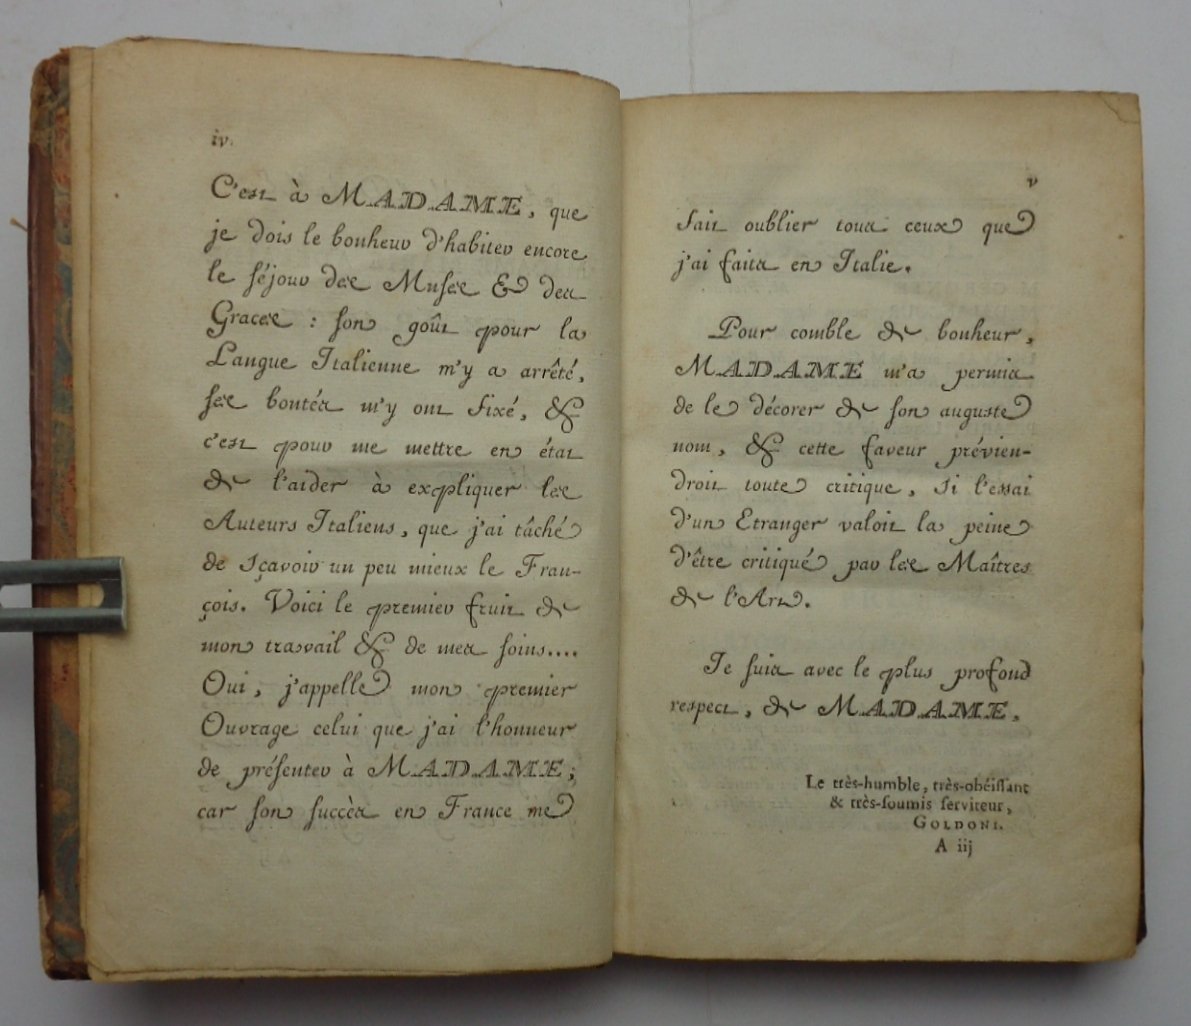 iv.
C'est à MADAME, que
je dois le bonheur d'habiter encore
le séjour des Muses & des
Graces : son goût pour la
Langue Italienne m'y a arrêté,
ses bontés m'y ont fixé, &
c'est pour me mettre en état
de l'aider à expliquer les
Auteurs Italiens, que j'ai tâché
de sçavoir un peu mieux le Fran-
çois. Voici le premier fruit de
mon travail & de mes soins....
Oui, j'appelle mon premier
Ouvrage celui que j'ai l'honneur
de présenter à MADAME;
car son succès en France me
v
fait oublier tous ceux que
j'ai faits en Italie.
Pour comble de bonheur,
MADAME m'a permis
de le décorer de son auguste
nom, & cette faveur prévien-
droit toute critique, si l'essai
d'un Etranger valoit la peine
d'être critiqué par les Maîtres
de l'Art.
Je suis avec le plus profond
respect, de MADAME,
Le très-humble, très-obéissant
& très-soumis serviteur,
GOLDONI.
A iij